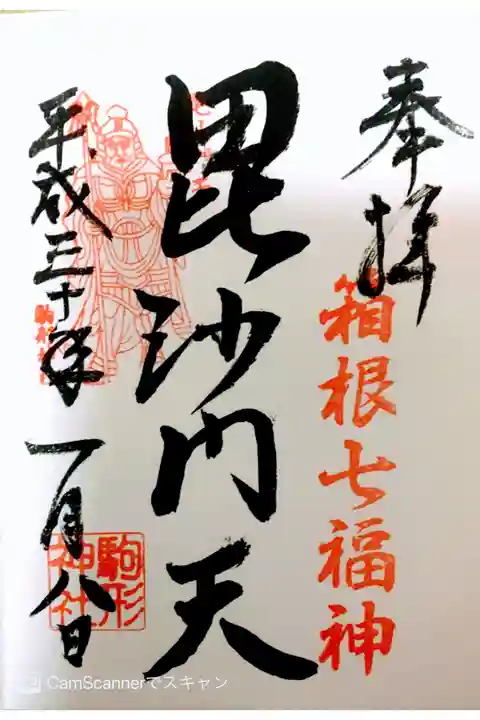 奉拝
箱根七福神
毘沙門天
平成三十年一月八日
駒形
神社
CamScannerでスキャン